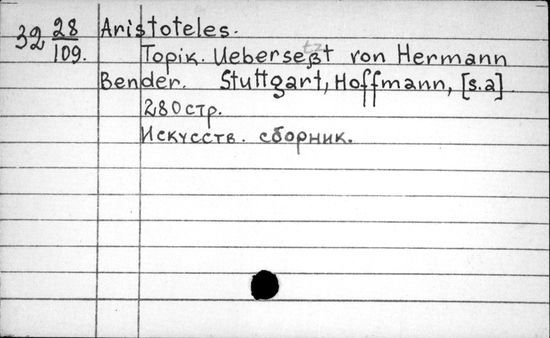 32 28/109. Aristoteles.
Topik. Ueberseßt von Hermann
Bender. Stuttgart, Hoffmann, [s.a].
280стр.
Искусств. сборник.